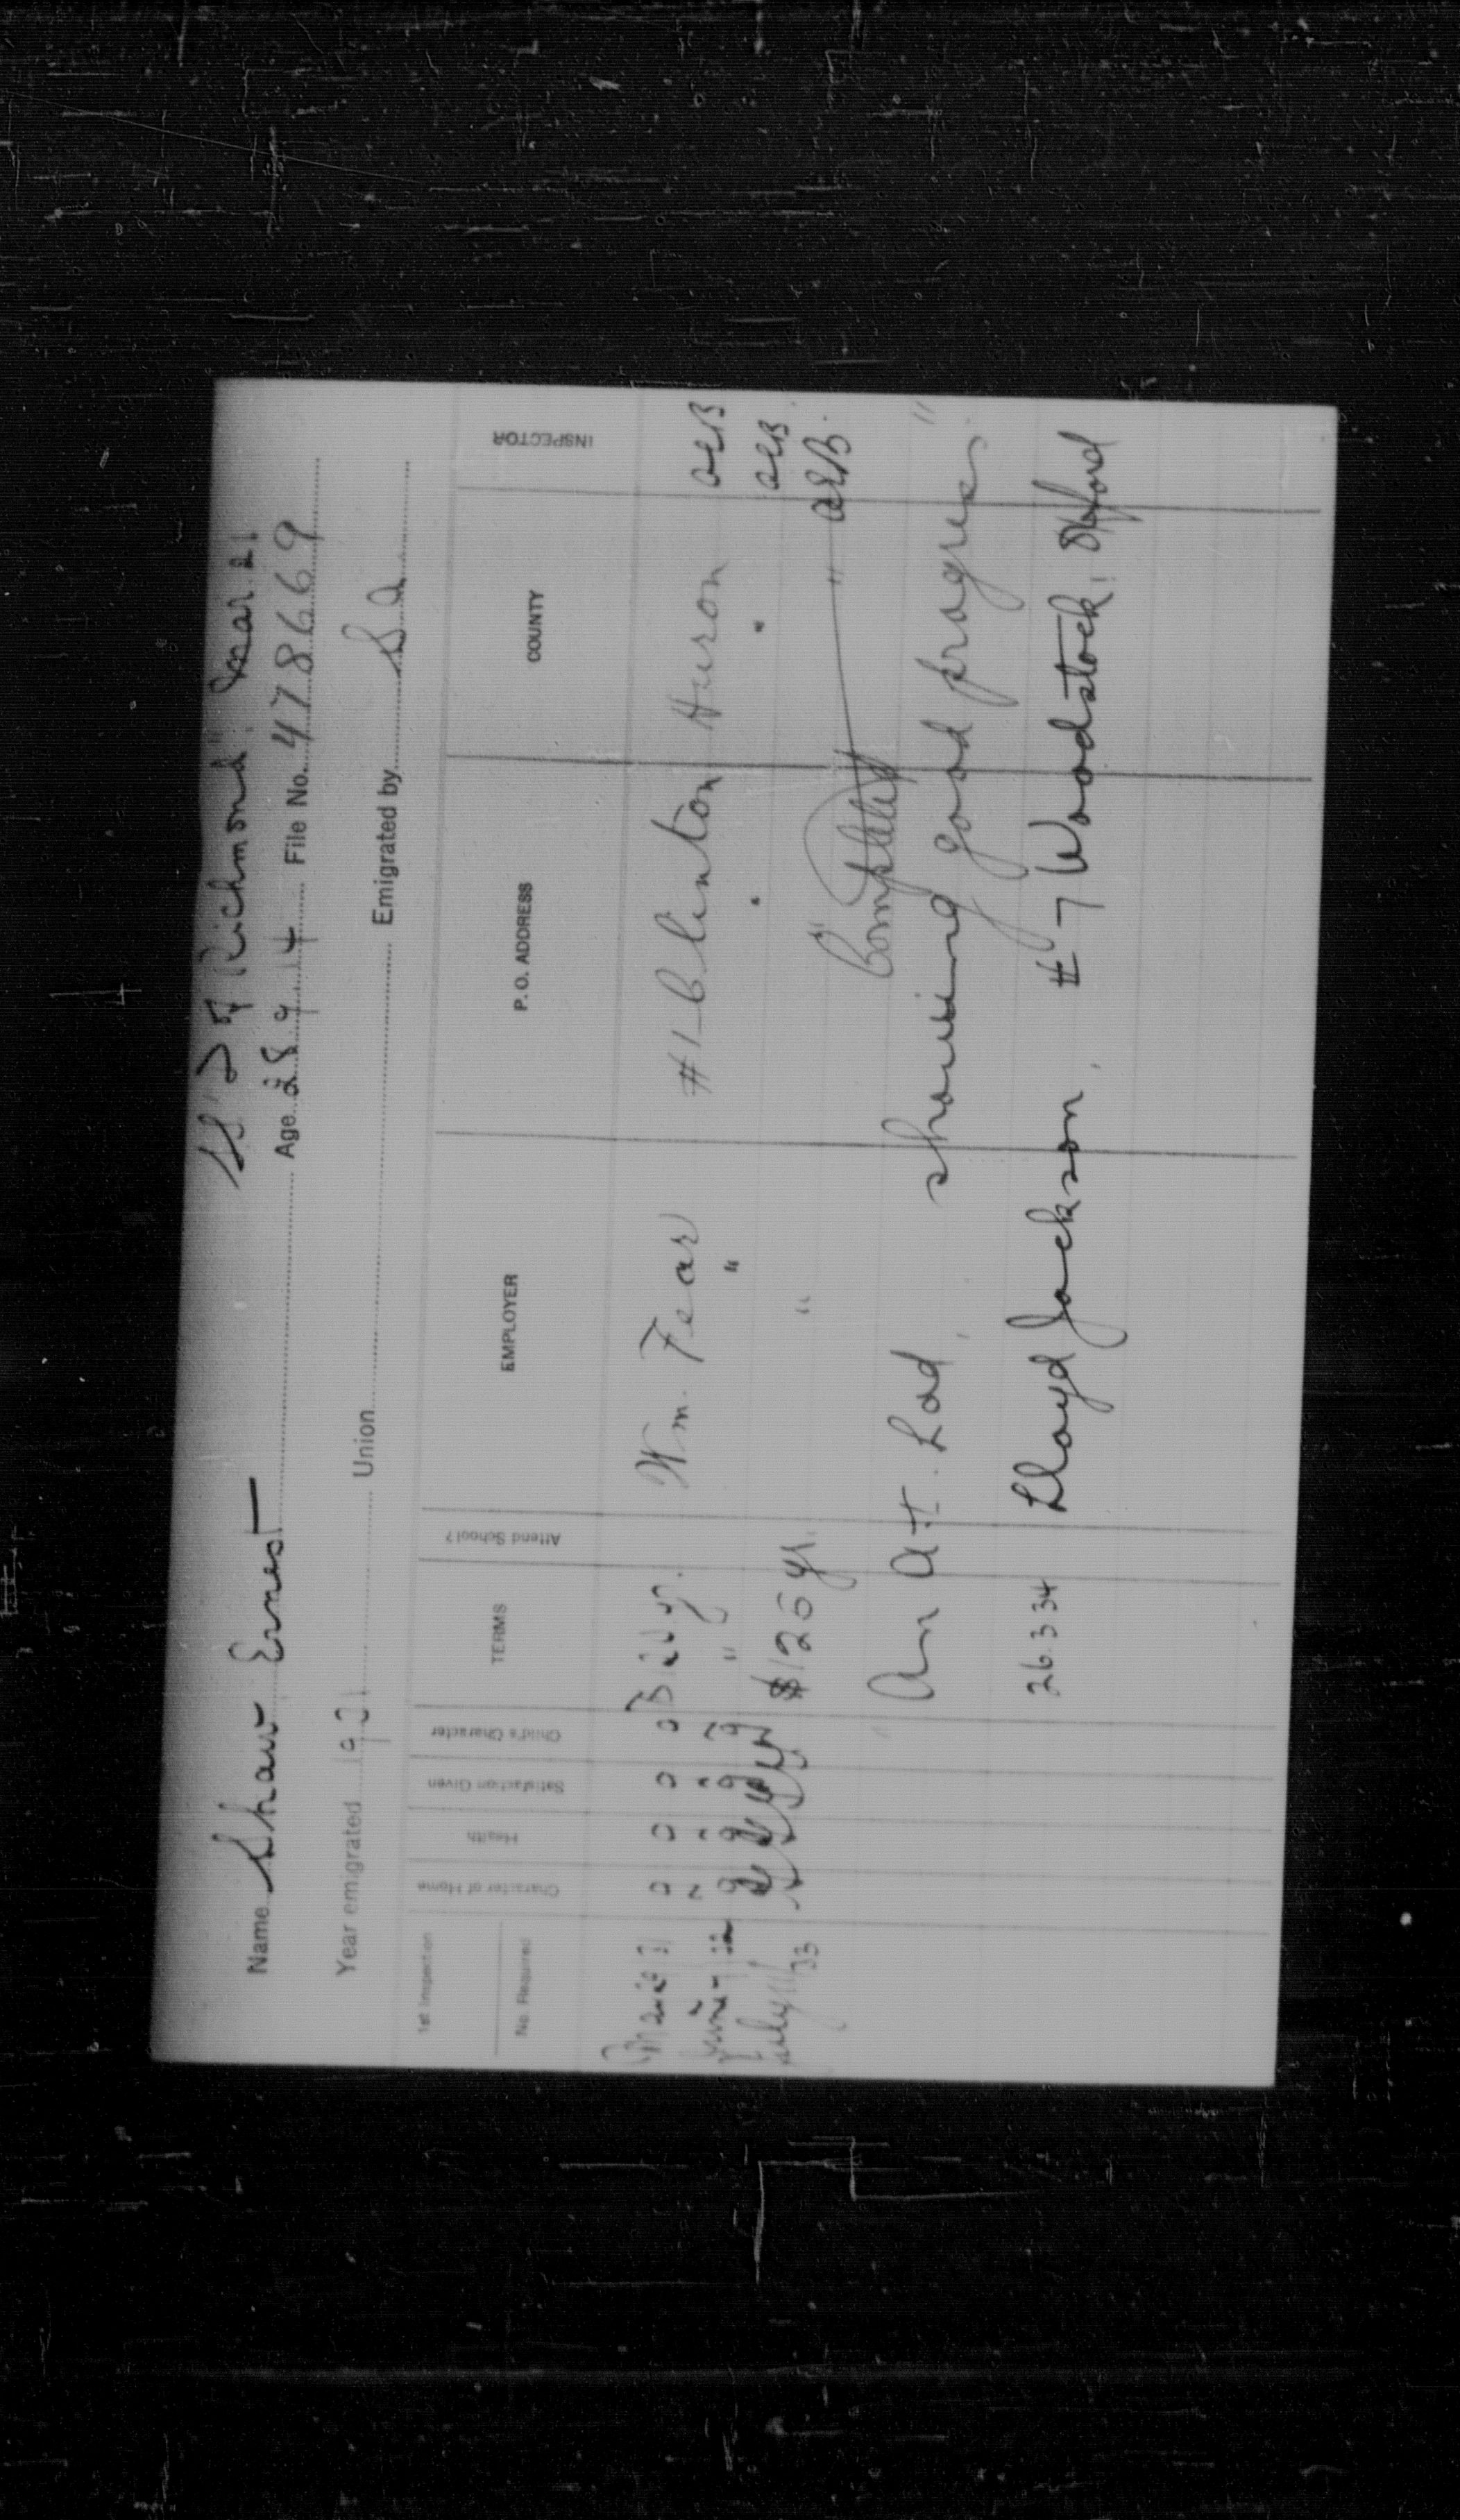 SS "D of Richmond". Mar. 21
Name Shaw Ernest Age 28 9 14 File No. 478669
Year emigrated 1931 Union Emigrated by S A
1st Inspection
No. Required
Character of Home Health Satisfaction Given Child's Character TERMS Attend School? EMPLOYER P. O. ADDRESS COUNTY INSPECTOR
0 0 0 0 Wm. Fear #1 Clinton Huron OEB
" " " " " " OEB
July 11/33 g g g g $125 yr. " " " OEB
Completed
An A+. Lad, showing good progress. "
26.3.34 Lloyd Jackson, #7 Woodstock, Oxford